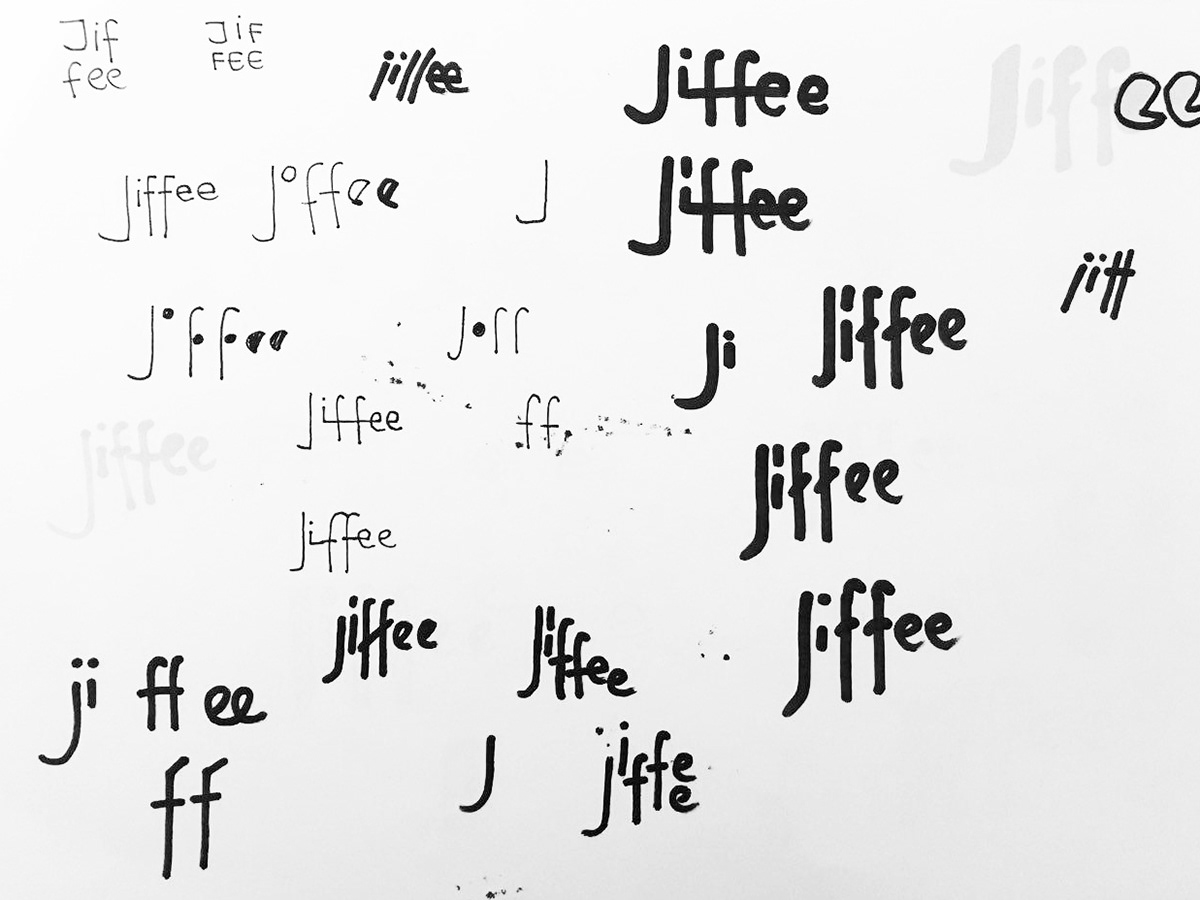 Jif
fee
JiF
FEE
jiffee
Jiffee
Jiff
ee
Jiffee
Jiffee
J
Jiffee
jiff
Jiffee
Jiff
Ji
Jiffee
Jiffee
ff
Jiffee
Jiffee
Jiffee
jiffee
Jiffee
Jiffee
ji ff ee
ff
J
jiffee